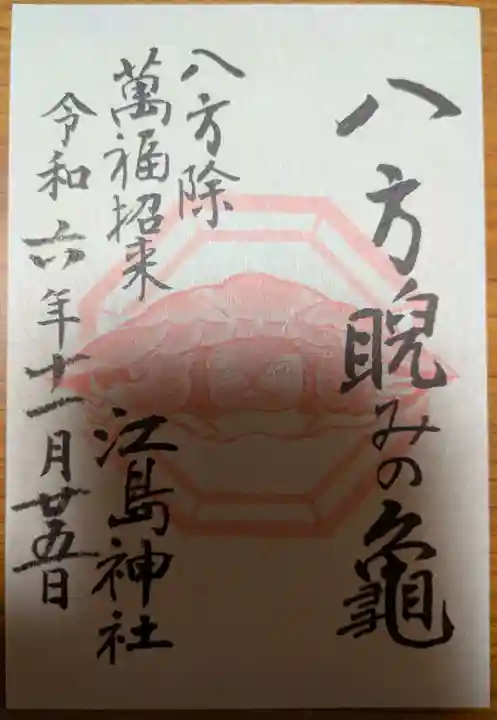 八方睨みの亀
八方除
萬福招来
江島神社
令和六年十一月廿五日